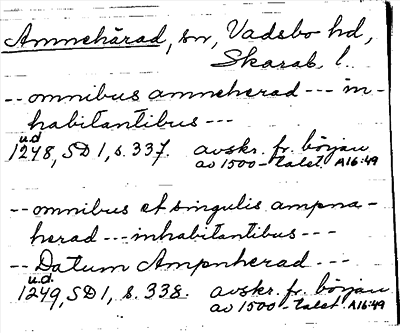 Amnehärad, sn, Vadsbo hd,
Skarab. l.
-- omnibus amneherad --- in-
habitantibus ---
u.d
1248, SD 1, s. 337. avskr. fr. början
av 1500-talet. A16:49
-- omnibus et singulis ampna-
herad --- inhabitantibus ---
-- Datum Ampnherad ---
u.d.
1249, SD 1, s. 338. avskr. fr. början
av 1500-talet A16:49